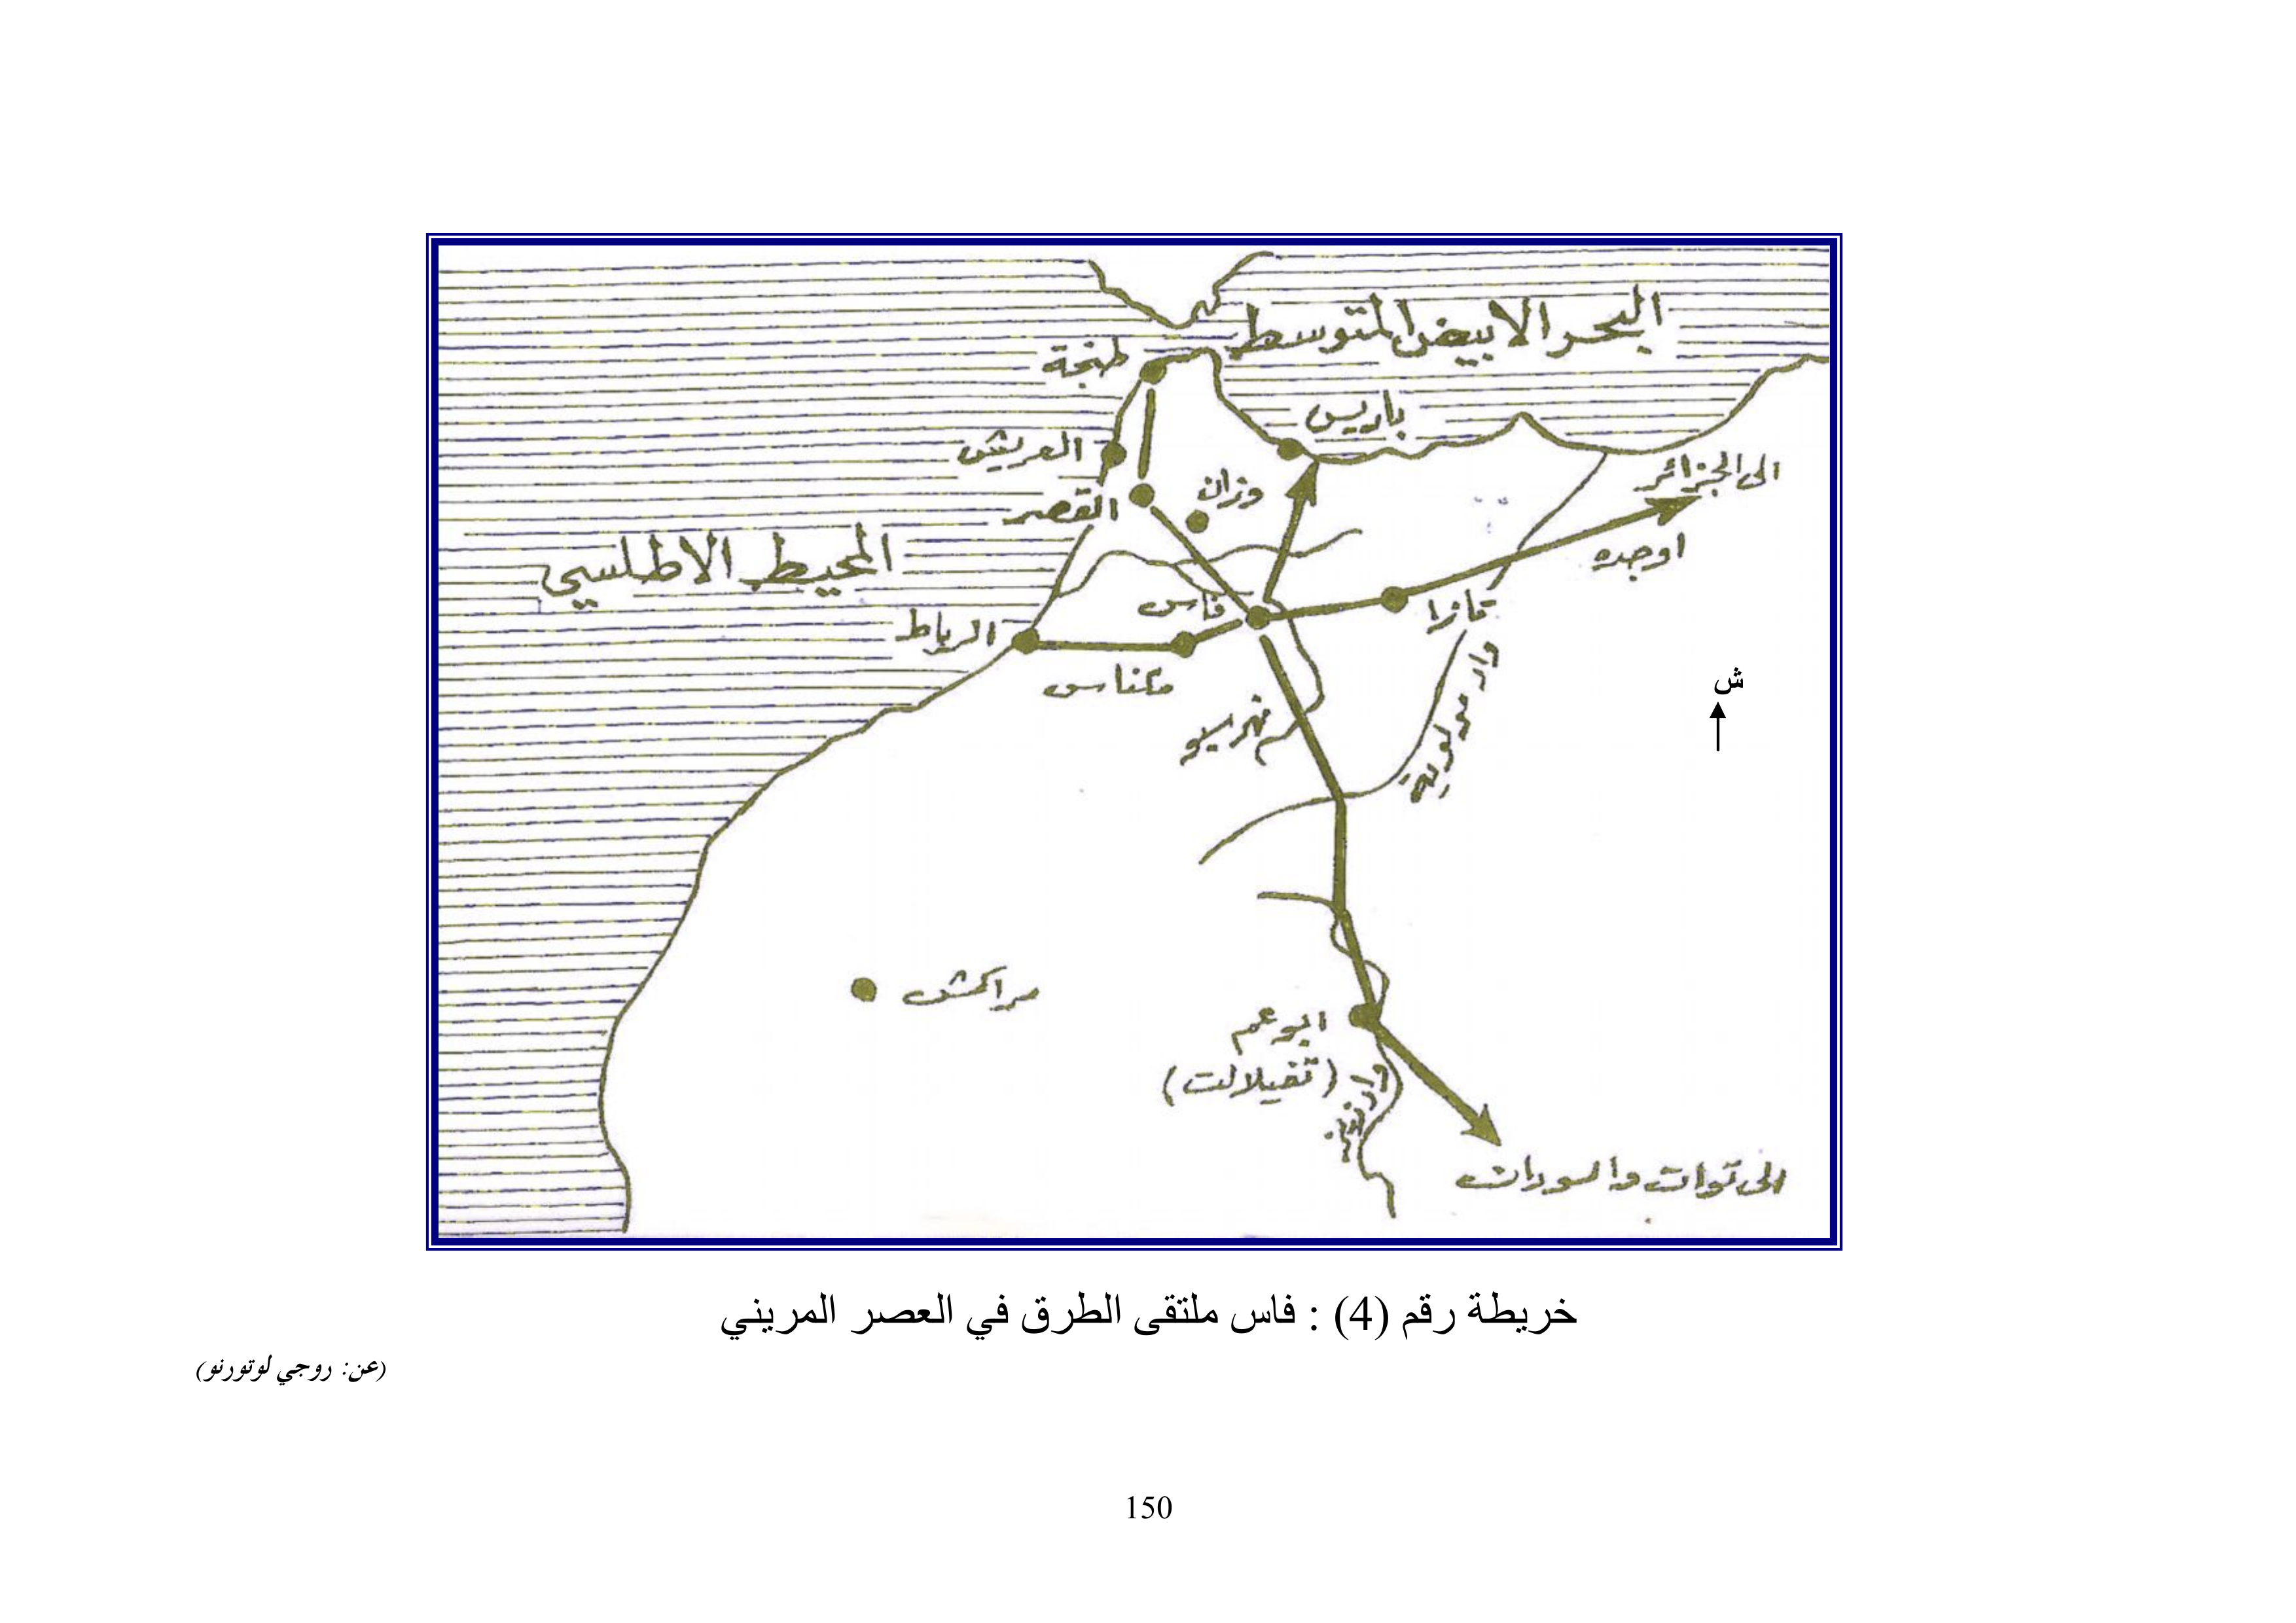 البحر الابيض المتوسط
طنجة
باريس
العريش
الى الجزائر
وزان
القصر
اوجده
المحيط الاطلسي
فاس
تازا
الرباط
مكناس
واد مولوية
ش
نهر سبو
مراكش
ابوعم
(تفيلالت)
واد زيز
الى توات والسودان
خريطة رقم (4) : فاس ملتقى الطرق في العصر المريني
(عن: روجي لوتورنو)
150